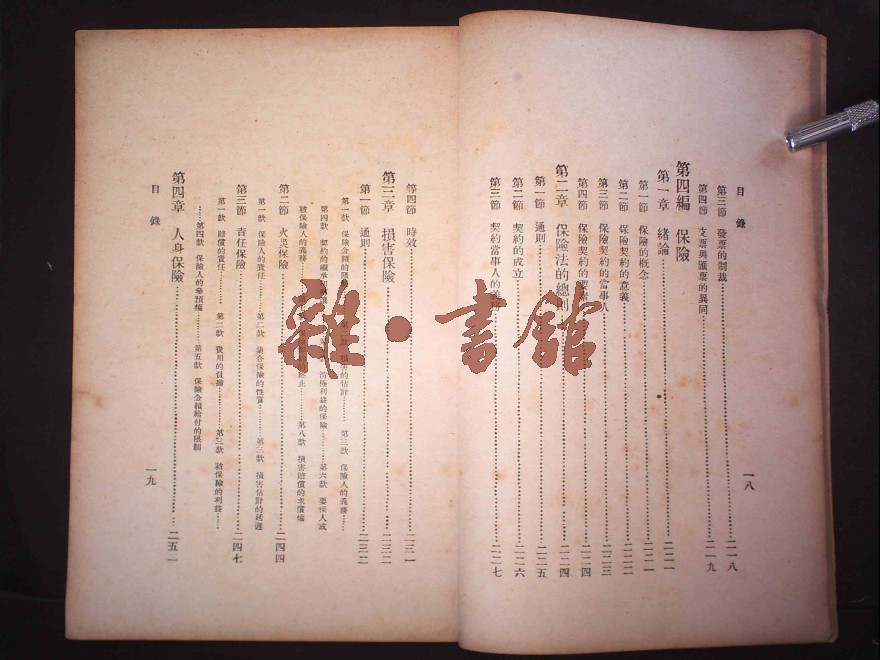 目錄
第三節 發票的制裁 二一八
第四節 支票與匯票的異同 二一九
第四編 保險
第一章 緒論 二二一
第一節 保險的概念 二二一
第二節 保險契約的意義 二二二
第三節 保險契約的當事人 二二三
第四節 保險契約的要素 二二四
第二章 保險法的總則 二二四
第一節 通則 二二五
第二節 契約的成立 二二六
第三節 契約當事人的義務 二二七
一八
第四節 時效 二三一
第三章 損害保險 二三二
第一節 通則 二三二
第一款 保險金額的限制 損害的估計 第三款 保險人的義務
第四款 契約的繼承和 消極利益的保險 第六款 要保人或
被保險人的義務 終止 第八款 損害賠償的求償權
第二節 火災保險 二四四
第一款 保險人的責任 第二款 集合保險的性質 第三款 損害估計的延遲
第三節 責任保險 二四七
第一款 賠償的責任 第二款 費用的負擔 第三款 被保險的利益
第四款 保險人的參預權 第五款 保險金額給付的限制
第四章 人身保險 二五一
目錄
一九
雜·書館